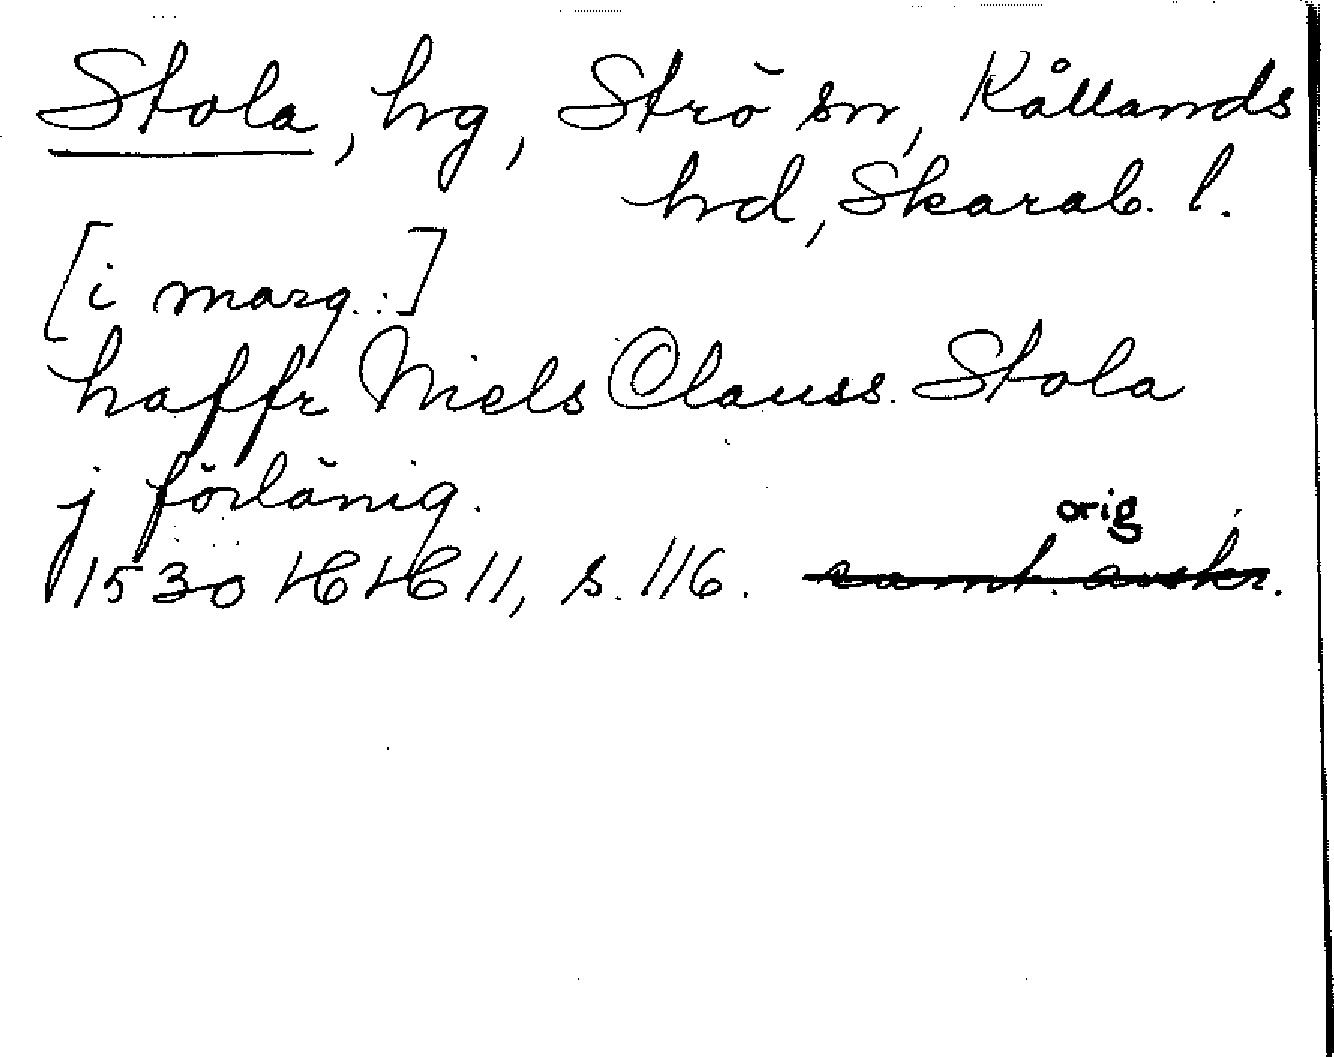 Stola, hg, Strö sn, Kållands
hd, Skarab. l.
[i marg.:]
haffr Niels Clauss. Stola
j förläning.
orig
1530 HH 11, s. 116. samt. avskr.